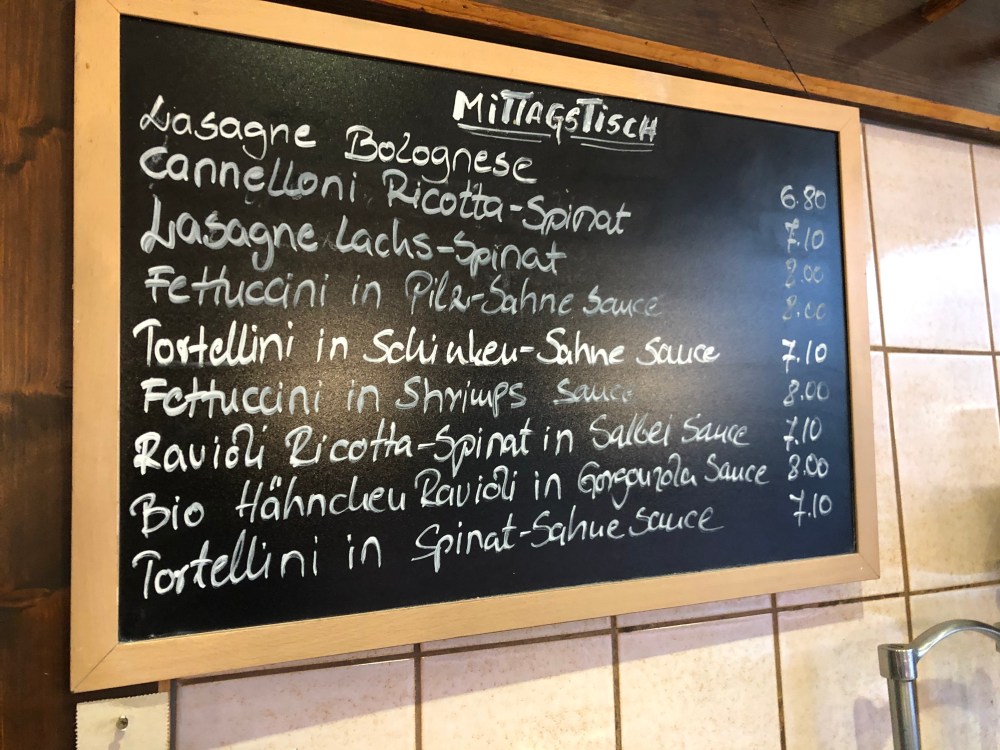 MiTTAGSTiSCH
Lasagne Bolognese 6.80
Cannelloni Ricotta-Spinat 7.10
Lasagne Lachs-Spinat 8.00
Fettuccini in Pilz-Sahne Sauce 8.00
Tortellini in Schinken-Sahne Sauce 7.10
Fettuccini in Shrimps Sauce 8.00
Ravioli Ricotta-Spinat in Salbei Sauce 7.10
Bio Hähnchen Ravioli in Gorgonzola Sauce 8.00
Tortellini in Spinat-Sahne Sauce 7.10